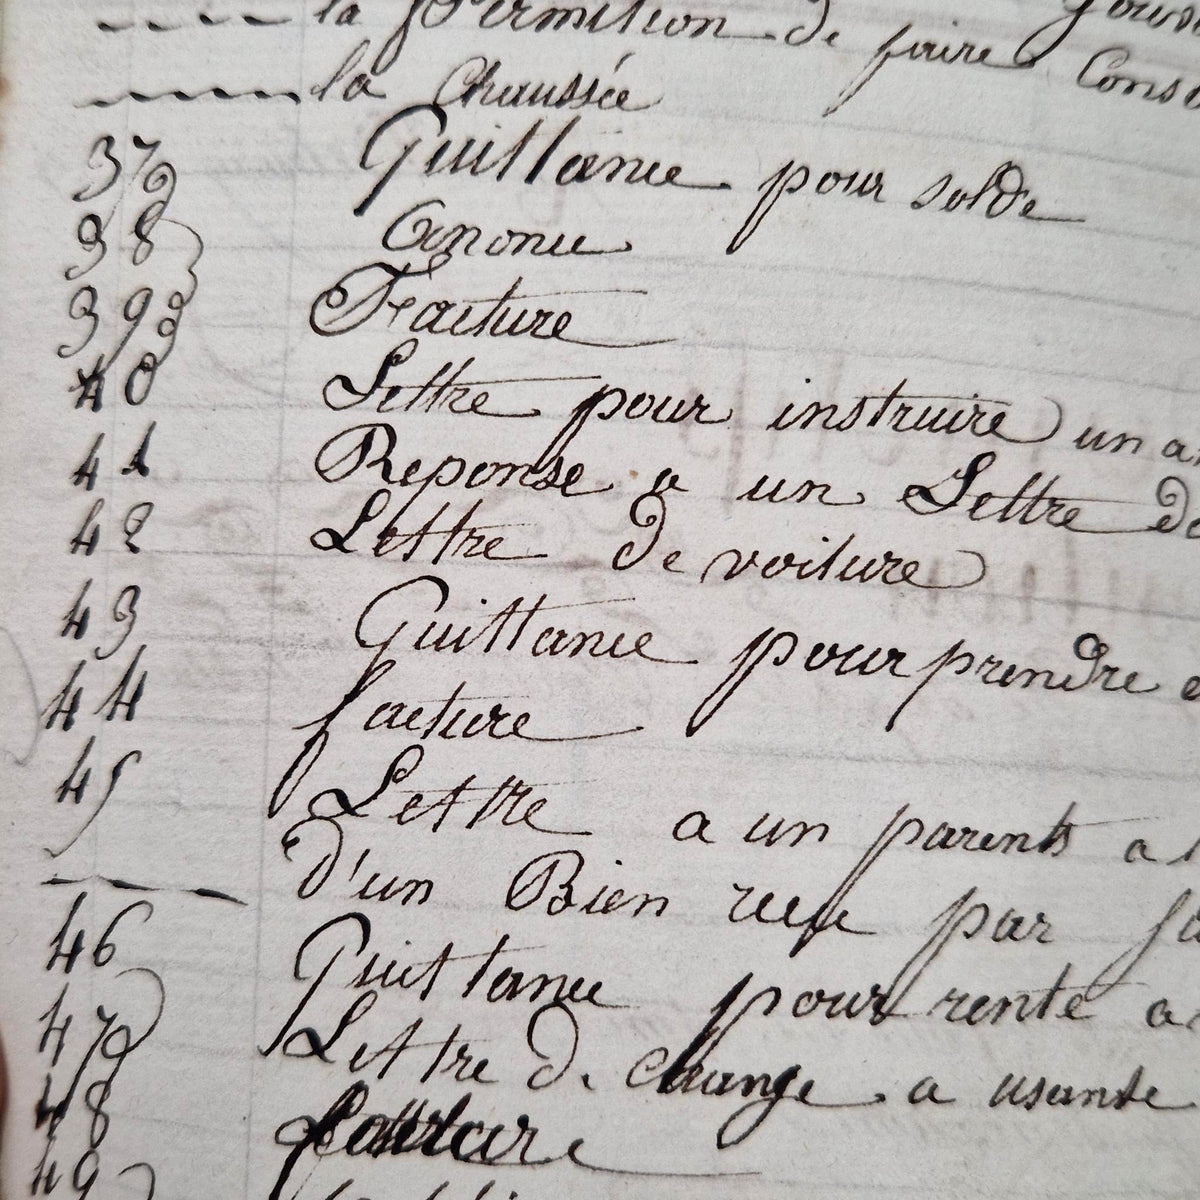 la Permition de faire Cons
la Chaussée
37 Quittance pour solde
38 Anonce
39 Facture
40 Lettre pour instruire un a
41 Reponse a un Lettre de
42 Lettre de voiture
43 Quittance pour prendre
44 facture
45 Lettre a un parents a
d'un Bien reçu par
46 Quittance pour rente a
47 Lettre de Change a usante
48
49